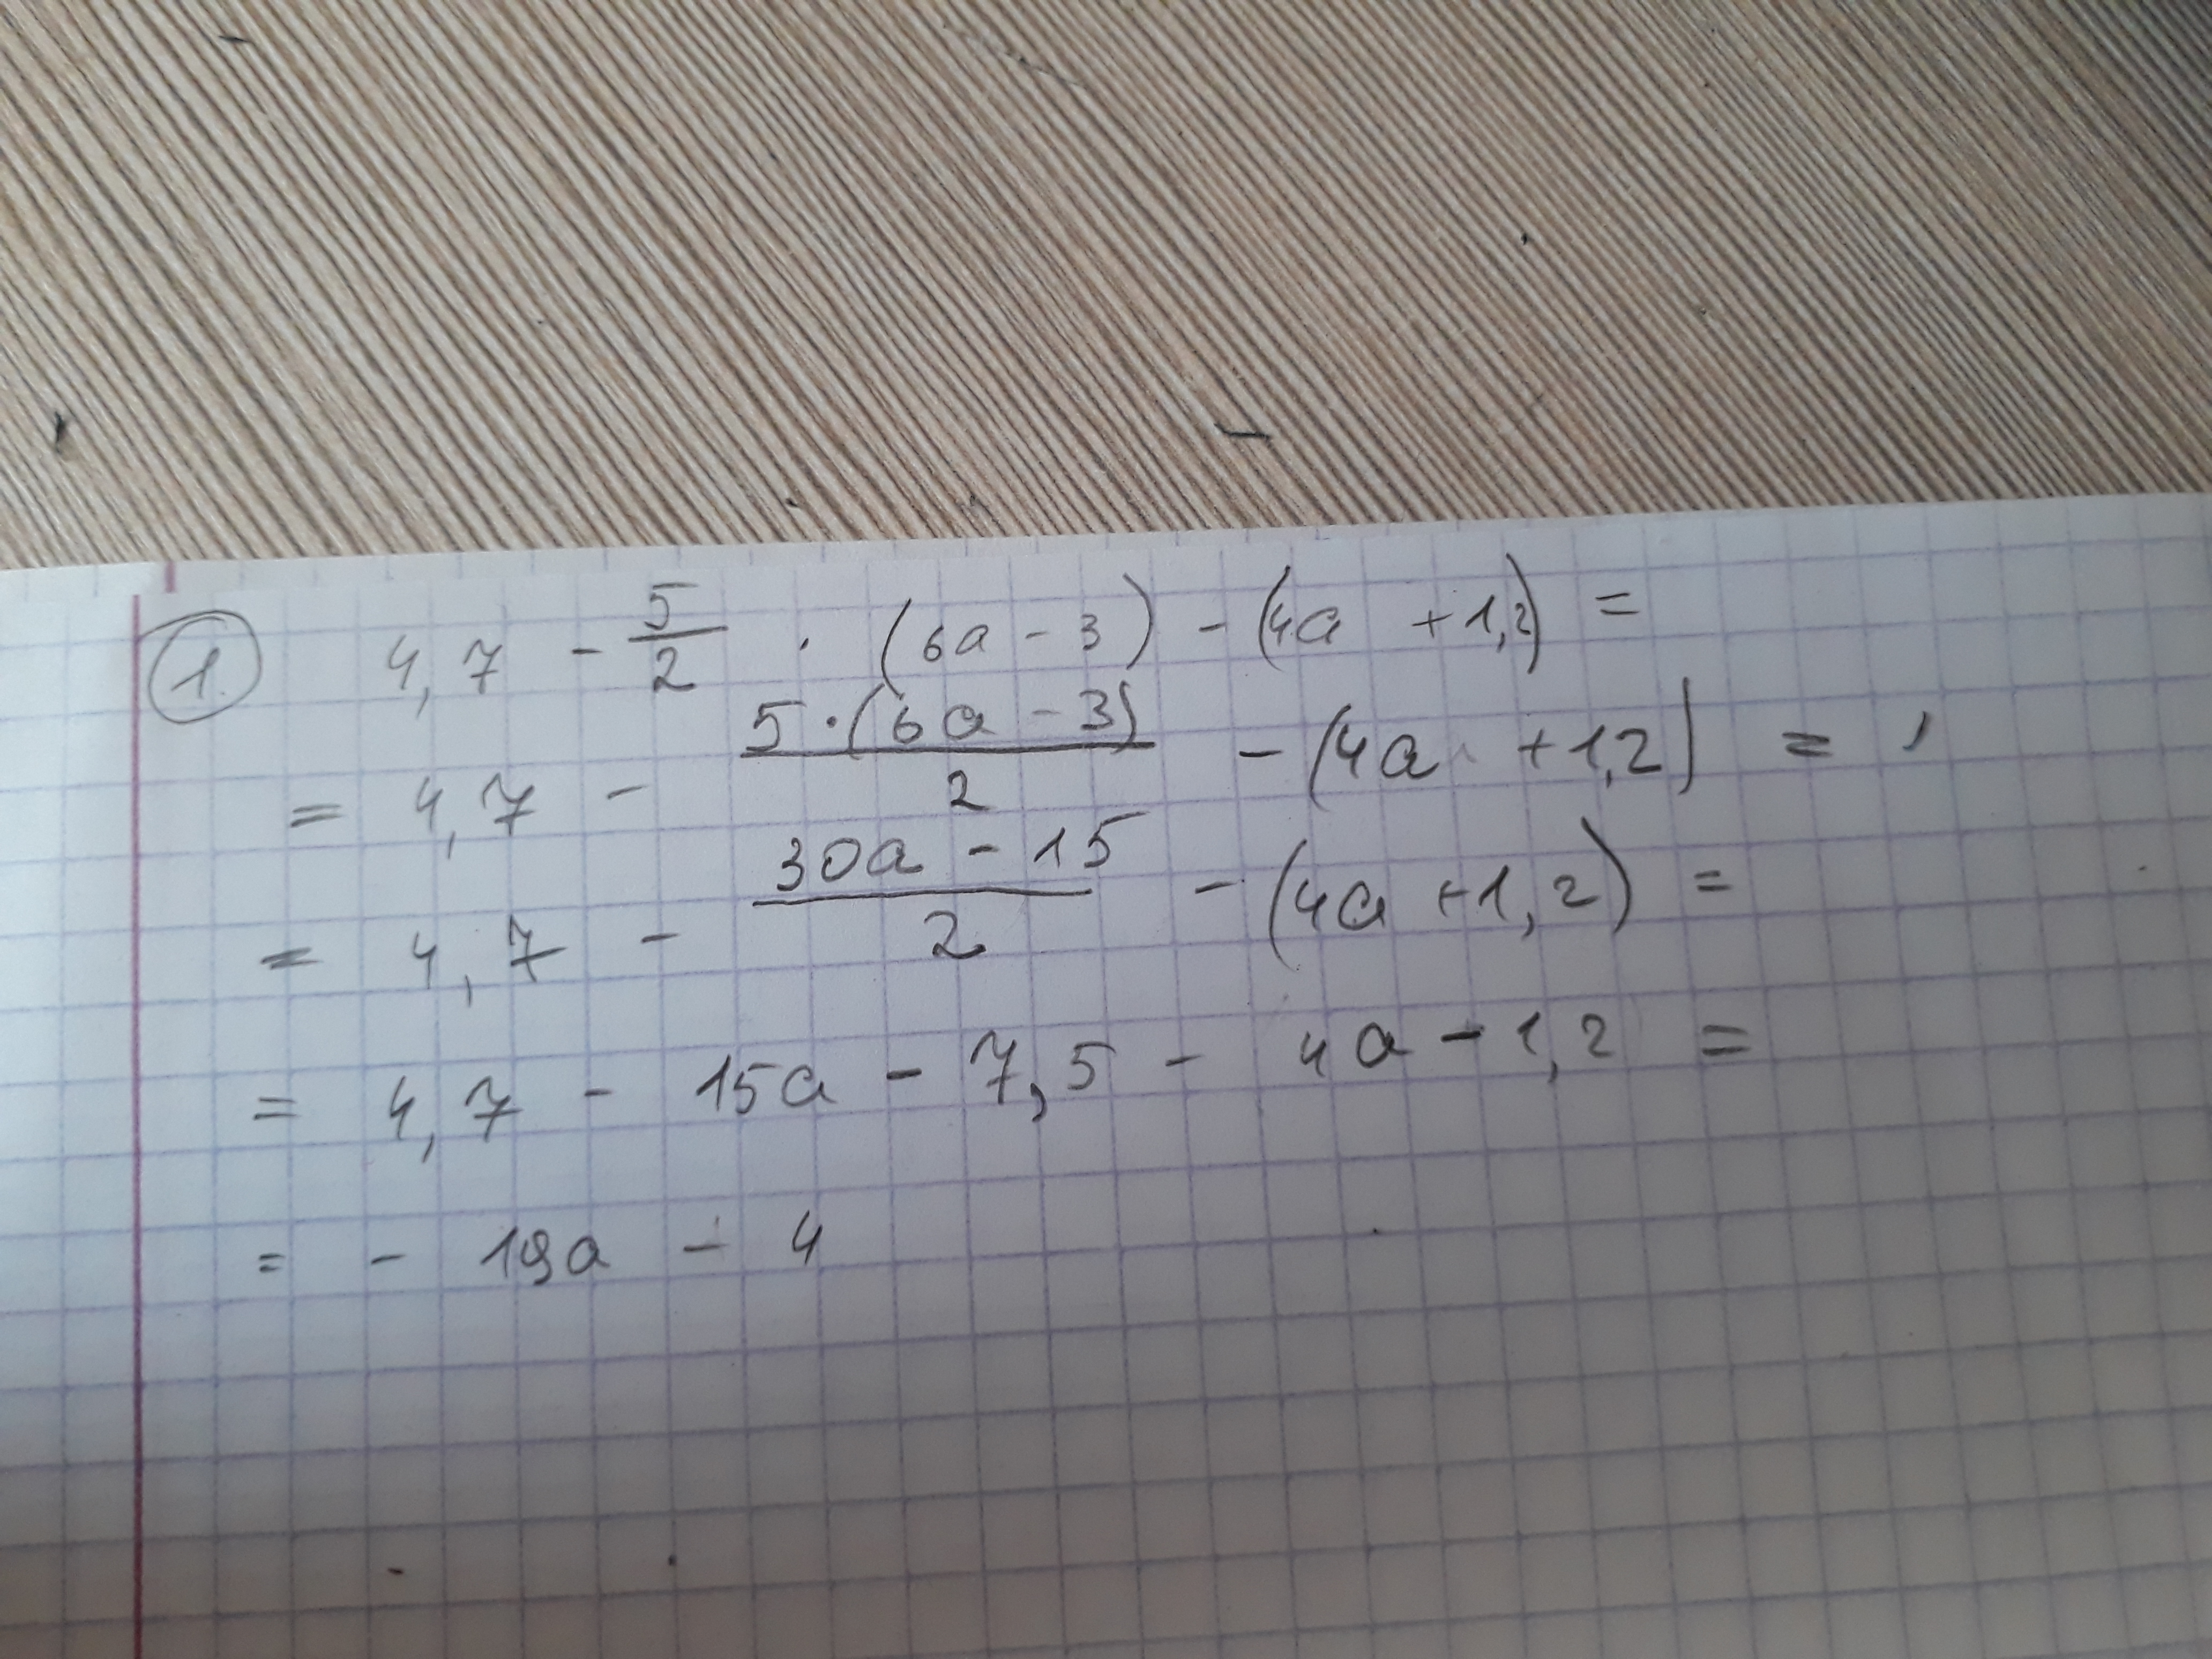 1. 4,7 - 5/2 · (6a - 3) - (4a + 1,2) =
= 4,7 - 5·(6a - 3)/2 - (4a + 1,2) =
= 4,7 - 30a - 15/2 - (4a + 1,2) =
= 4,7 - 15a - 7,5 - 4a - 1,2 =
= - 19a - 4